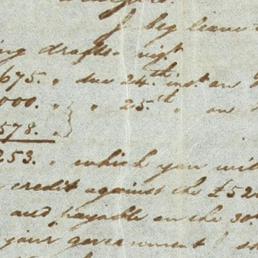 I beg leave
ing drafts
675. " due 24th inst. on
000. " " 25th " on
578.
253. " which you will
credit against the £52
and payable on the 30th
your government I